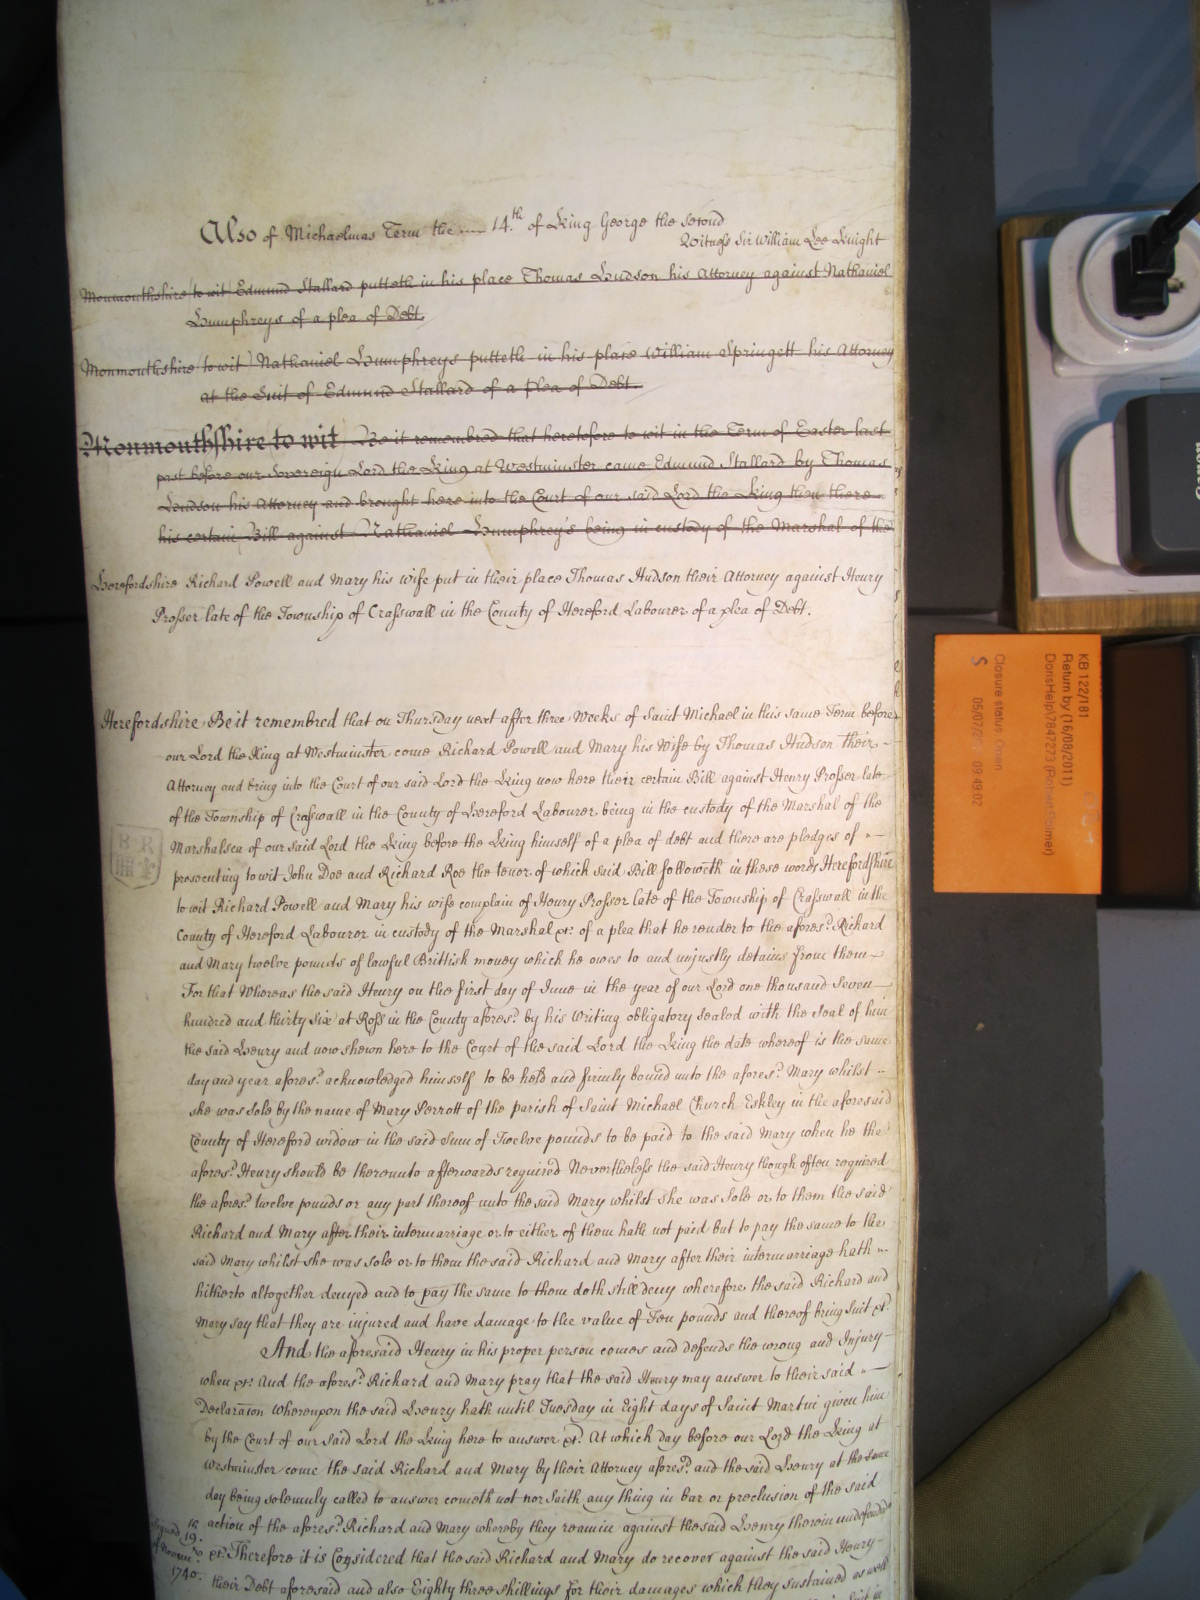 Also of Michaelmas Term the ---- 14.th of King George the Second
Witness Sir William Lee Knight
Monmouthshire (to wit) Edmund Stallard putteth in his place Thomas Hudson his Attorney against Nathaniel
Humphreys of a plea of Debt.
Monmouthshire (to wit) Nathaniel Humphreys putteth in his place William Springett his Attorney
at the Suit of Edmund Stallard of a plea of Debt.
Monmouthshire to wit Be it remembred that heretofore to wit in the Term of Easter last
past before our Sovereign Lord the King at Westminster came Edmund Stallard by Thomas
Hudson his Attorney and brought here into the Court of our said Lord the King then there
his certain Bill against Nathaniel Humphrey's being in custody of the Marshal of the
Herefordshire Richard Powell and Mary his wife put in their place Thomas Hudson their Attorney against Henry
Prosser late of the Township of Crasswall in the County of Hereford Labourer of a plea of Debt.
Herefordshire Be it remembred that on Thursday next after three Weeks of Saint Michael in this same Term before
our Lord the King at Westminster come Richard Powell and Mary his Wife by Thomas Hudson their
Attorney and bring into the Court of our said Lord the King now here their certain Bill against Henry Prosser late
of the Township of Crasswall in the County of Hereford Labourer being in the custody of the Marshal of the
Marshalsea of our said Lord the King before the King himself of a plea of debt and there are pledges of
prosecuting to wit John Doe and Richard Roe the tenor of which said Bill followeth in these words Herefordshire
to wit Richard Powell and Mary his wife complain of Henry Prosser late of the Township of Crasswall in the
County of Hereford Labourer in custody of the Marshal &c: of a plea that he render to the afores.d Richard
and Mary twelve pounds of lawful Brittish money which he owes to and unjustly detains from them
For that Whereas the said Henry on the first day of June in the year of our Lord one thousand Seven
hundred and thirty Six at Ross in the County afores.d by his Writing obligatory sealed with the Seal of him
the said Henry and now shewn here to the Court of the said Lord the King the date whereof is the same
day and year afores.d acknowledged himself to be held and firmly bound unto the afores.d Mary whilst
she was sole by the name of Mary Perrott of the parish of Saint Michael Church Eskley in the aforesaid
County of Hereford widow in the said Sum of Twelve pounds to be paid to the said Mary when he the
afores.d Henry should be thereunto afterwards required Nevertheless the said Henry though often required
the afores.d twelve pounds or any part thereof unto the said Mary whilst she was Sole or to them the said
Richard and Mary after their intermarriage or to either of them hath not paid but to pay the same to the
said Mary whilst she was sole or to them the said Richard and Mary after their intermarriage hath
hitherto altogether denyed and to pay the same to them doth still deny wherefore the said Richard and
Mary say that they are injured and have damage to the value of Ten pounds and thereof bring Suit &c.
And the aforesaid Henry in his proper person comes and defends the wrong and Injury
when &c: And the afores.d Richard and Mary pray that the said Henry may answer to their said
Declaration whereupon the said Henry hath until Tuesday in Eight days of Saint Martin given him
by the Court of our said Lord the King here to answer &c. At which day before our Lord the King at
Westminster come the said Richard and Mary by their Attorney afores.d and the said Henry at the same
day being solemnly called to answer cometh not nor saith any thing in bar or preclusion of the said
action of the afores.d Richard and Mary whereby they remain against the said Henry therein undefended
Signed
19.th
of Novem.r
1740.
&c. Therefore it is Considered that the said Richard and Mary do recover against the said Henry
their Debt aforesaid and also Eighty three shillings for their damages which they sustained as well
KB 122/181
Return by (16/08/2011)
Closure status: Open
S
05/07/ 09:49:02
Canon